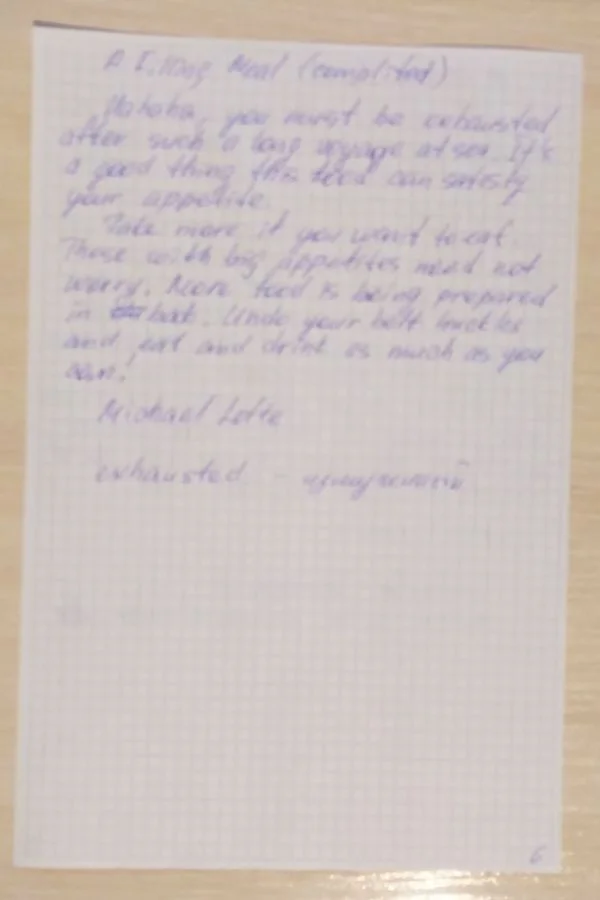 A Filling Meal (complited)
Hahaha, you must be exhausted
after such a long voyage at sea. It's
a good thing this food can satisfy
your appetite.
Take more if you want to eat.
Those with big appetites need not
worry. More food is being prepared
in bak. Undo your belt buckles
and eat and drink as much as you
can!
Michael Lotte
exhausted - измученный
6